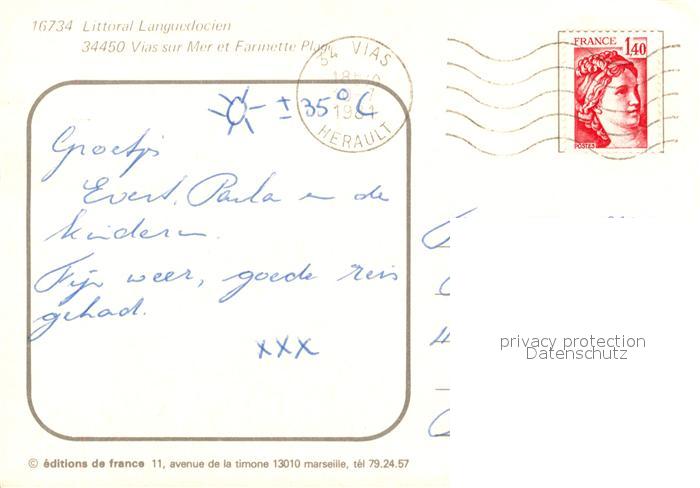 16734 Littoral Languedocien
34450 Vias sur Mer et Farinette Plage
34 VIAS
HERAULT
FRANCE
1,40
POSTES
± 35° C
Groetjes
Evert, Paula en de
kinderen.
Fijn weer, goede reis
gehad.
xxx
privacy protection
Datenschutz
© éditions de france 11, avenue de la timone 13010 marseille, tél 79.24.57